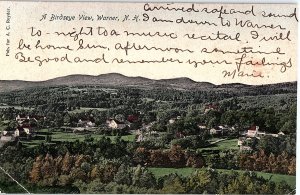 Arrived safe and sound
A Birdseye View, Warner, N. H.
I am down to Warner
to-night to a music recital. I will
be home Sun. afternoon sometime
Be good and remember your failings
Marie
Pub. for A. C.